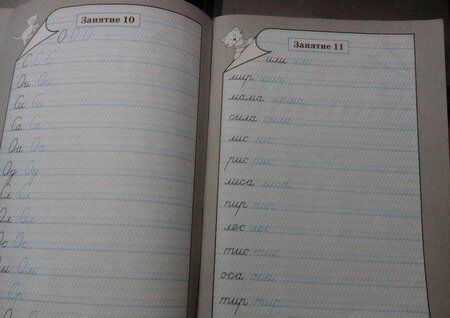 Занятие 10
О О О
С С С
Ои Ои
Си Си
Са Са
Оа Оа
Оу Оу
Сл Сл
Ол Ол
Ос Ос
Ом Ом
Ср
Занятие 11
или или
мир мир
мама мама
сила сила
лис лис
рис рис
лиса лиса
пир пир
лес лес
тис тис
оса оса
тир тир